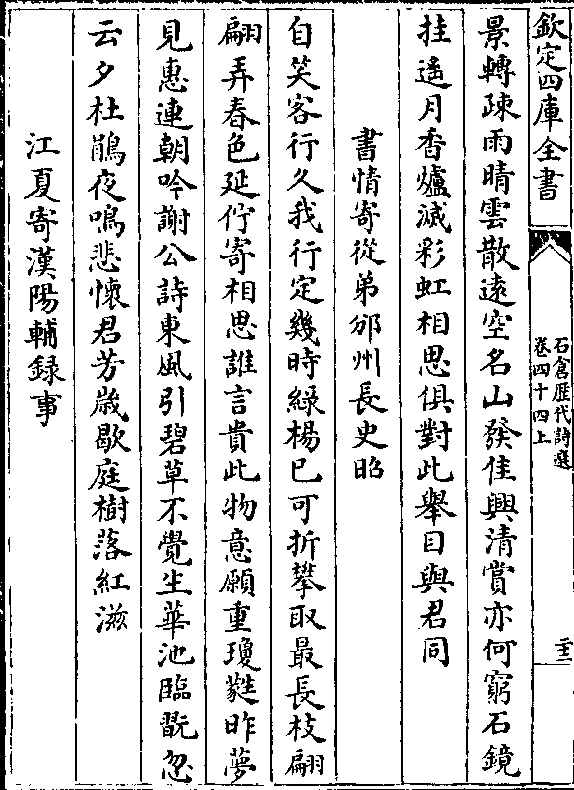 欽定四庫全書
石倉歴代詩選
卷四十四上
二十三
景轉疎雨晴雲散遠空名山發佳興清賞亦何窮石鏡
挂遥月香爐滅彩虹相思俱對此舉目與君同
書情寄從弟邠州長史昭
自笑客行久我行定幾時緑楊已可折攀取最長枝翩
翩弄春色延佇寄相思誰言貴此物意願重瓊蕤昨夢
見惠連朝吟謝公詩東風引碧草不覺生華池臨翫忽
云夕杜鵑夜鳴悲懷君芳歲歇庭樹落紅滋
江夏寄漢陽輔録事